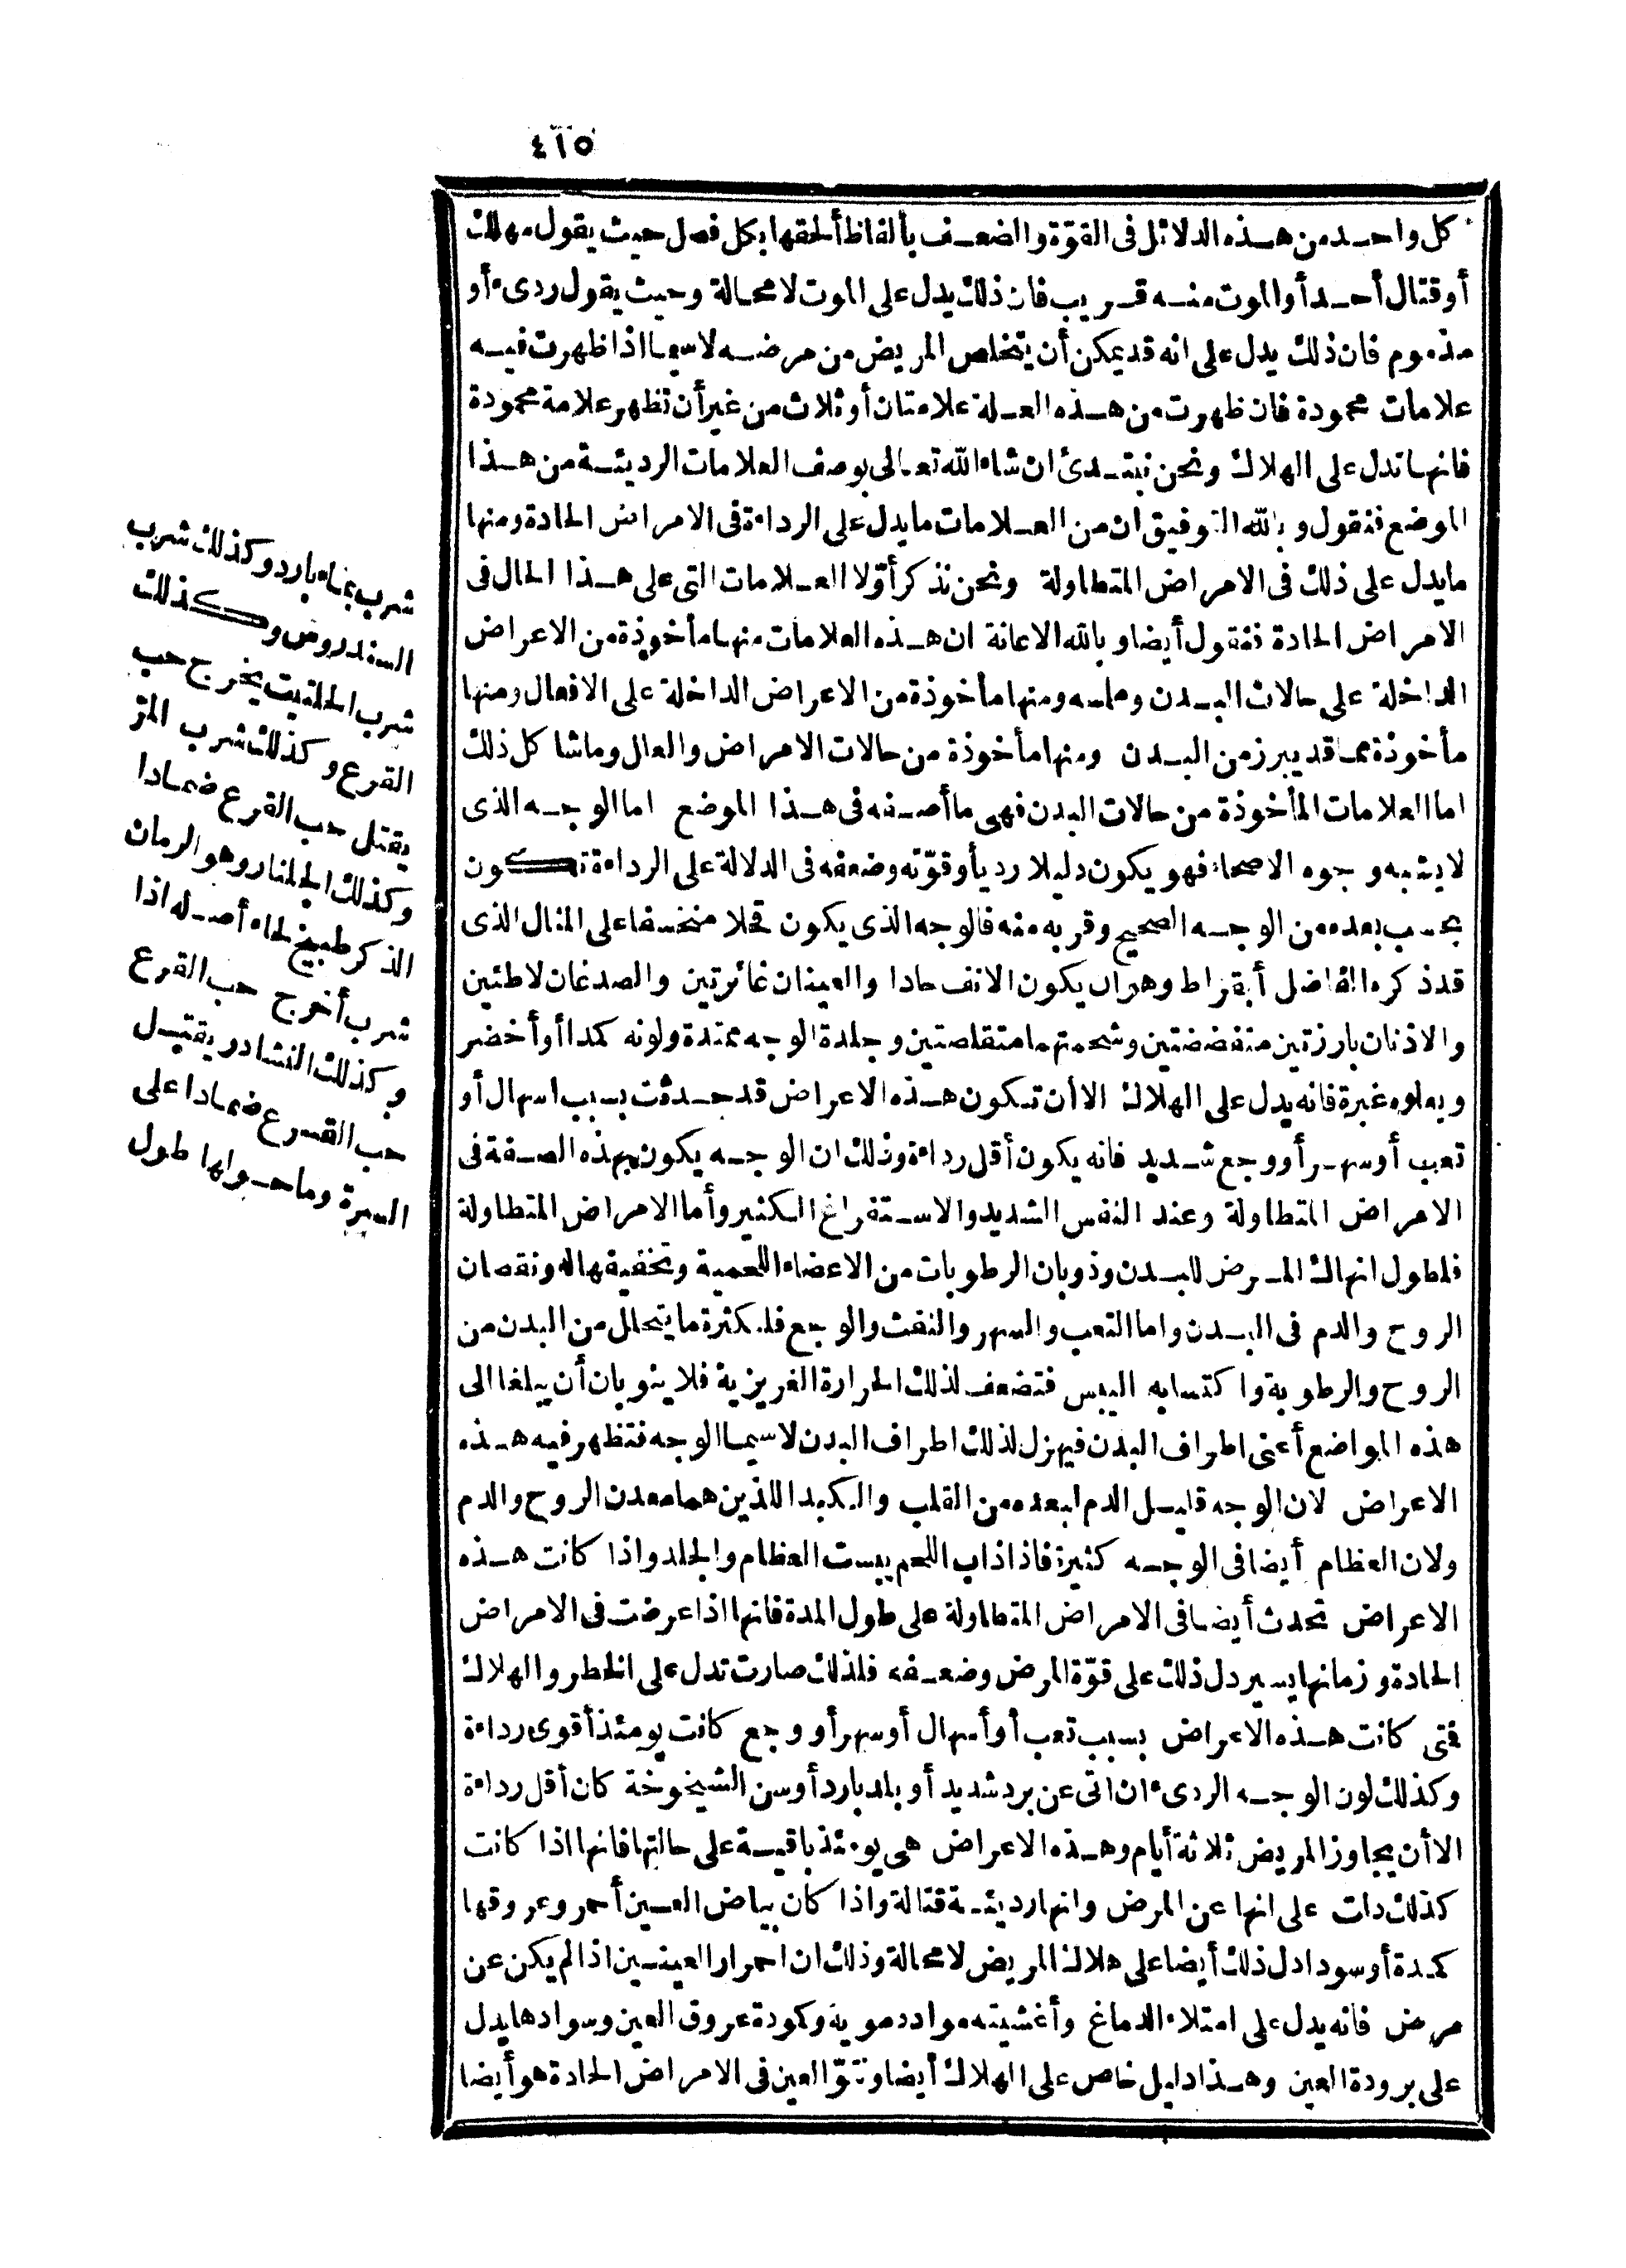 ٤١٥
كل واحد من هذه الدلائل فى القوّة والضعف بألفاظ ألحقها بكل فصل حيث يقول مهلك
أو قتال أحد أو الموت منه قريب فان ذلك يدل على الموت لا محالة وحيث يقول ردىء أو
مذموم فان ذلك يدل على انه قد يمكن أن يتخلص المريض من مرضه لا سيما اذا ظهرت فيه
علامات محمودة فان ظهرت من هذه العلة علامتان أو ثلاث من غير أن تظهر علامة محمودة
فانها تدل على الهلاك ونحن نبتدئ ان شاء الله تعالى بوصف العلامات الرديئة من هذا
الموضع فنقول وبالله التوفيق ان من العلامات ما يدل على الرداءة فى الامراض الحادة ومنها
ما يدل على ذلك فى الامراض المتطاولة ونحن نذكر أوّلا العلامات التى على هذا الحال فى
الامراض الحادة فنقول أيضا وبالله الاعانة ان هذه العلامات منها مأخوذة من الاعراض
الداخلة على حالات البدن وملمسه ومنها مأخوذة من الاعراض الداخلة على الافعال ومنها
مأخوذة مما قد يبرز من البدن ومنها مأخوذة من حالات الامراض والعال وماشا كل ذلك
اما العلامات المأخوذة من حالات البدن فهى ما أصفه فى هذا الموضع اما الوجه الذى
لا يشبه وجوه الاصحاء فهو يكون دليلا رديأ وقوّته وضعفه فى الدلالة على الرداءة تكون
بحسب بعده من الوجه الصحيح وقربه منه فالوجه الذى يكون قحلا منخسفا على المثال الذى
قد ذكره الفاضل أبقراط وهو ان يكون الانف حادا والعينان غائرتين والصدغان لاطئين
والاذنان بارزتين منقضضتين وشحمتهما متقلصتين وجلدة الوجه ممتدة ولونه كمدا أو أخضر
ويعلوه غبرة فانه يدل على الهلاك الا أن تكون هذه الاعراض قد حدثت بسبب اسهال أو
تعب أو سهر أو وجع شديد فانه يكون أقل رداءة وذلك ان الوجه يكون بهذه الصفة فى
الامراض المتطاولة وعند النفس الشديد والاستفراغ الكثير وأما الامراض المتطاولة
فلطول انهاك المرض للبدن وذوبان الرطوبات من الاعضاء اللحمية وتخفيفها له ونقصان
الروح والدم فى البدن واما التعب والسهر والنفث والوجع فلكثرة ما يتحلل من البدن من
الروح والرطوبة واكتسابه اليبس فتضعف لذلك الحرارة الغريزية فلا يثوبان أن يبلغا الى
هذه المواضع أعنى اطراف البدن فيهزل لذلك اطراف البدن لا سيما الوجه فتظهر فيه هذه
الاعراض لان الوجه قليل الدم لبعده من القلب والكبد اللذين هما معدن الروح والدم
ولان العظام أيضا فى الوجه كثيرة فاذا ذاب اللحم يبست العظام والجلد واذا كانت هذه
الاعراض تحدث أيضا فى الامراض المتطاولة على طول المدة فانها اذا عرضت فى الامراض
الحادة وزمانها يسير دل ذلك على قوّة المرض وضعفه فلذلك صارت تدل على الخطر والهلاك
فتى كانت هذه الاعراض بسبب تعب أو أسهال أو سهر أو وجع كانت يومئذ أقوى رداءة
وكذلك لون الوجه الردىء ان اتى عن برد شديد أو بلد بارد أو سن الشيخوخة كان أقل رداءة
الا أن يجاوز المريض ثلاثة أيام وهذه الاعراض هى يومئذ باقية على حالتها فانها اذا كانت
كذلك دات على انها عن المرض وانها رديئة قتالة واذا كان بياض العين أحمر وعروقها
كمدة أو سودا دل ذلك أيضا على هلاك المريض لا محالة وذلك ان احمرار العينين اذا لم يكن عن
مرض فانه يدل على امتلاء الدماغ وأغشيته مواد دموية وكمودة عروق العين وسوادها يدل
على برودة العين وهذا دليل خاص على الهلاك أيضا ونتوّ العين فى الامراض الحادة هو أيضا
شرب بماء بارد وكذلك شرب
السندروس وكذلك
شرب الحلتيت يخرج حب
القرع وكذلك شرب المرّ
يقتل حب القرع ضمادا
وكذلك الجلنار وهو الرمان
الذكر طبيخ لحاء أصله اذا
شرب أخرج حب القرع
وكذلك النشادر يقتل
حب القرع ضمادا على
السرة وما حولها طول